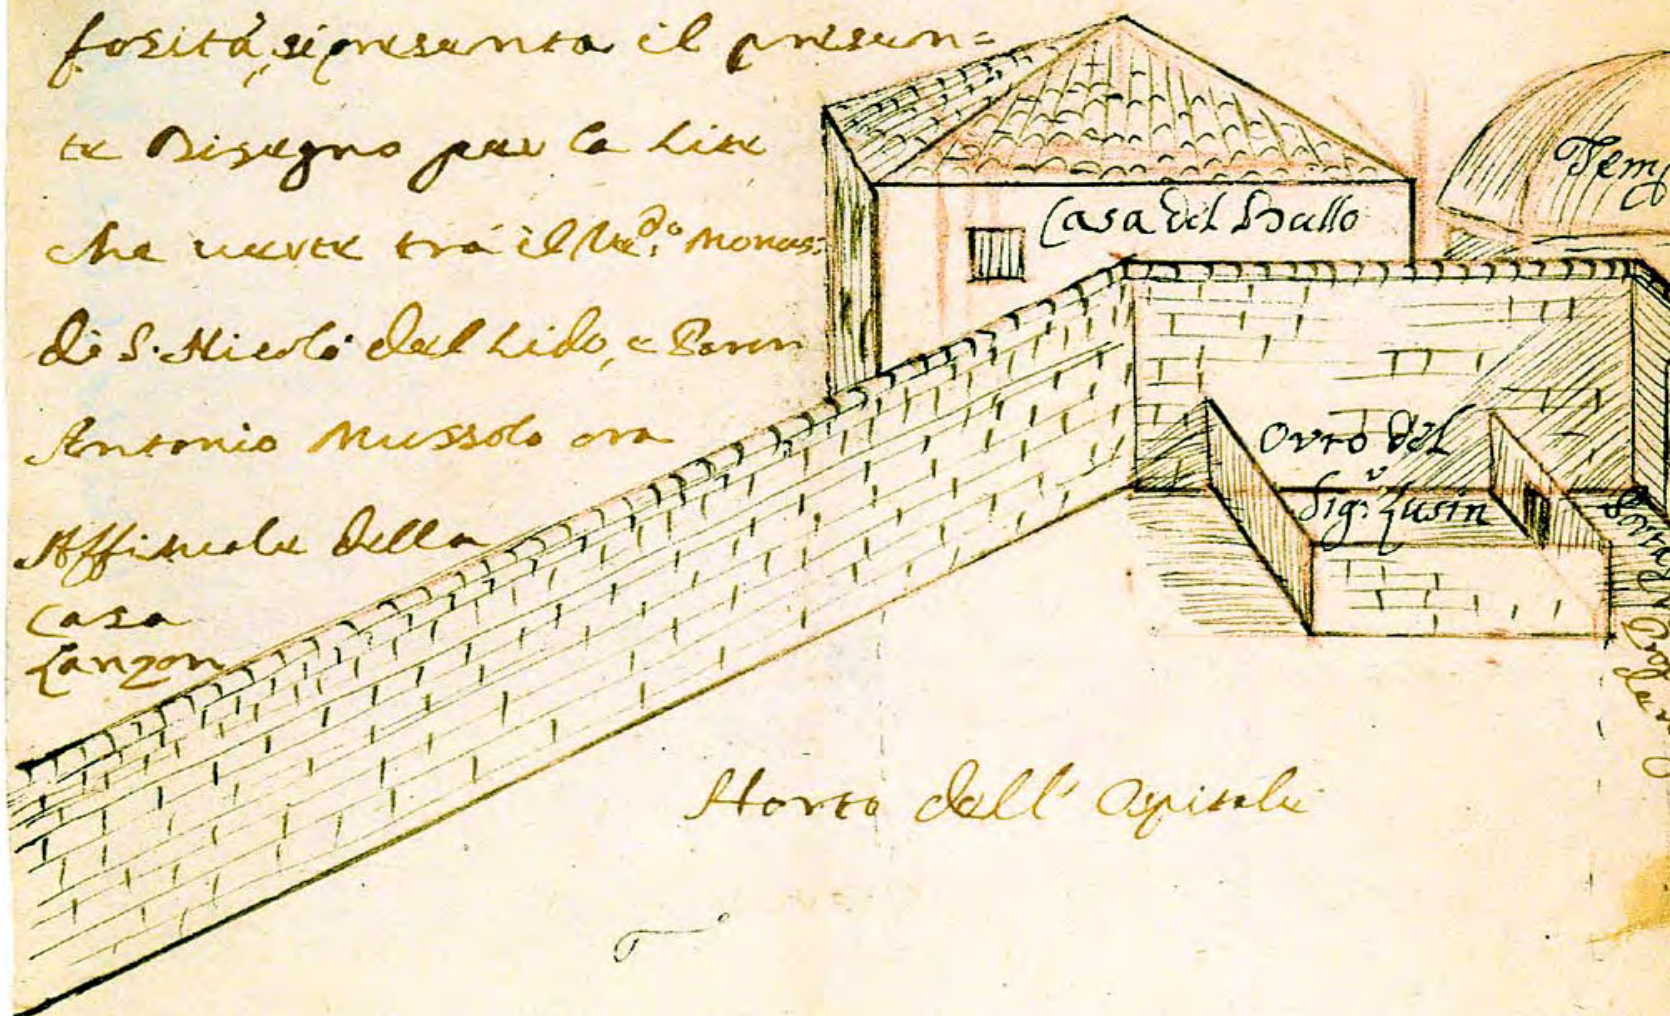 fosità, si presenta il presen=
te Disegno per la Lite
che verte trà il Ven:do Monas:
di S. Nicolò del Lido, e Paron
Antonio Mussolo ora
Affituale della
Casa
Zanzon
Casa del Bullo
Temp
Orto del
Sig:r Zusin
Horto dell' Ospitale